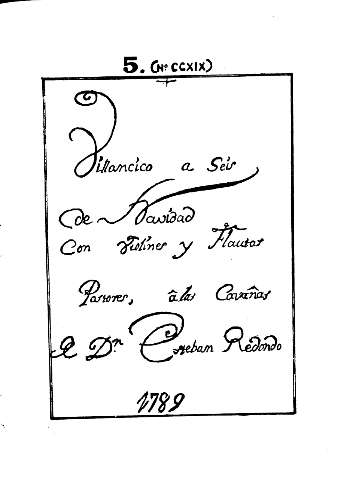 5. (Nº CCXIX)
Villancico a Seis
de Navidad
Con Violines y Flautas
Pastores, â las Cavañas
Dn Esteban Redondo
1789